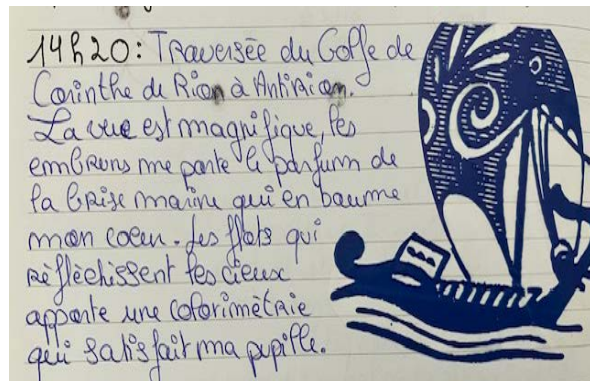 14h20: Traversée du Golfe de
Corinthe de Rion à Antirion.
La vue est magnifique, les
embruns me porte le parfum de
la brise marine qui en baume
mon coeur. Les flots qui
réfléchissent les cieux
apporte une colorimétrie
qui satisfait ma pupille.